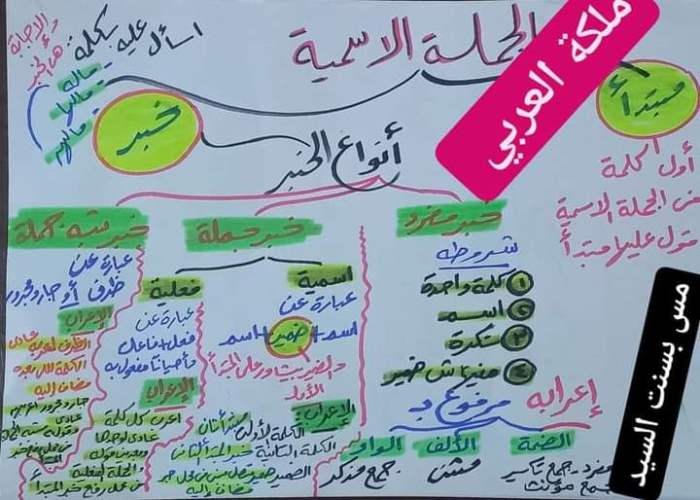 الجملة الاسمية
ملكة العربي
مس بسنت السيد
مبتدأ
أول كلمة
من الجملة الاسمية
نقول عليها مبتدأ
خبر
اسأل عليه بكلمة
ماله
مالها
مالهم
الاجابة
هي الخبر
أنواع الخبر
خبر مفرد
شروطه
١ كلمة واحدة
٢ اسم
٣ نكرة
٤ مفيهاش ضمير
إعرابه
مرفوع بـ
الضمة
مفرد - جمع تكسير
جمع مؤنث
الألف
مثنى
الواو
جمع مذكر
خبر جملة
اسمية
عبارة عن
اسم + ضمير + اسم
والضمير بيشاور على المبتدأ
الأول
الإعراب
الكلمة الأولى مبتدأ ثان
الكلمة الثانية خبر المبتدأ الثاني
الضمير ضمير متصل مبني في محل جر
مضاف إليه
فعلية
عبارة عن
فعل + فاعل
وأحيانا مفعول به
الإعراب
اعرب كل كلمة
عادي لوحدها
والجملة الفعلية
في محل رفع خبر المبتدأ
خبر شبه جملة
عبارة عن
ظرف أو جار ومجرور
الإعراب
الظرف تعربه عادي
الكلمة اللي بعده
مضاف إليه
جار ومجرور
عادي
في محل رفع خبر